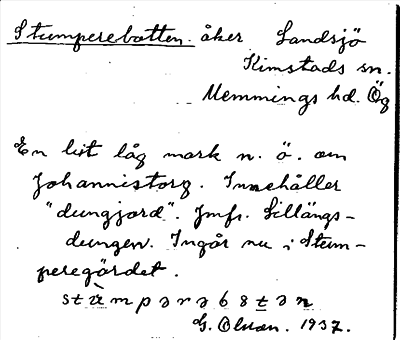 Stumperebotten. åker Landsjö
Kimstads sn.
Memmings hd. Ög
En bit låg mark n. ö. om
Johannistorg. Innehåller
"dungjord". Jmfr. Lillängs-
dungen. Ingår nu i Stum-
peregärdet.
G. Olsson. 1937.